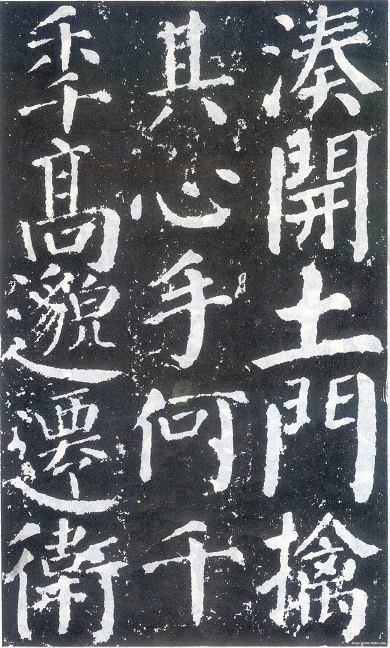 湊開土門擒
其心手何千
秊髙邈遷衛